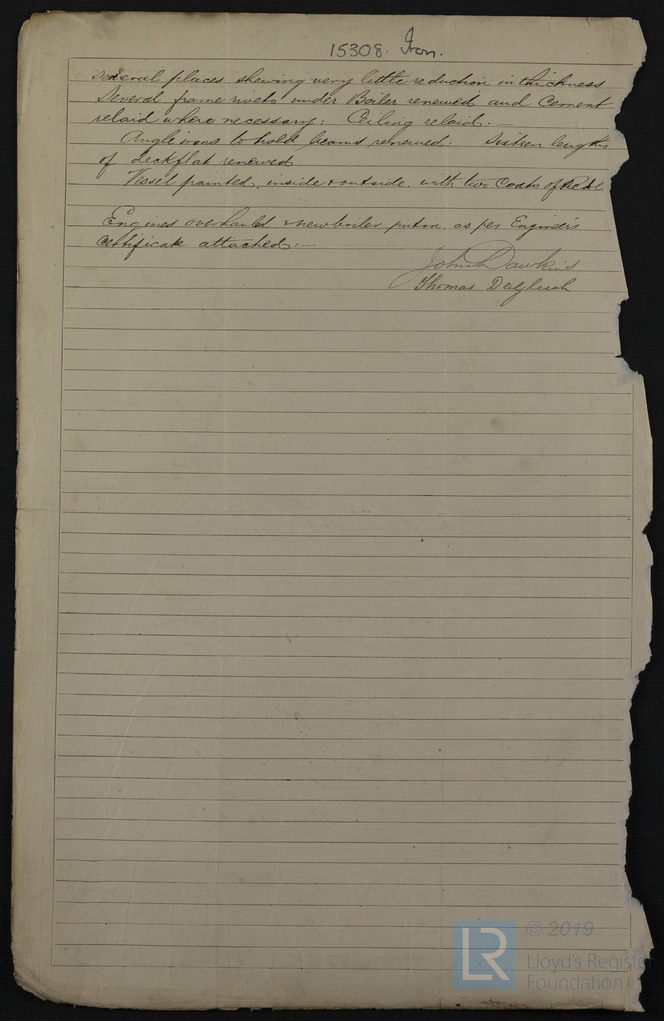 15308. Iron.
several places shewing very little reduction in thickness
Several frame rivets under Boiler renewed and Cement
relaid where necessary: Ceiling relaid:—
Angle irons to hold beams renewed: Sixteen lengths
of deckflat renewed
Vessel painted, inside & outside, with two Coats of
Engines overhauld & new boiler put on, as per Engineer's
Certificate attached:—
John Dawkins
Thomas Dalgliesh
LR
© 2019
Lloyd's Register
Foundation